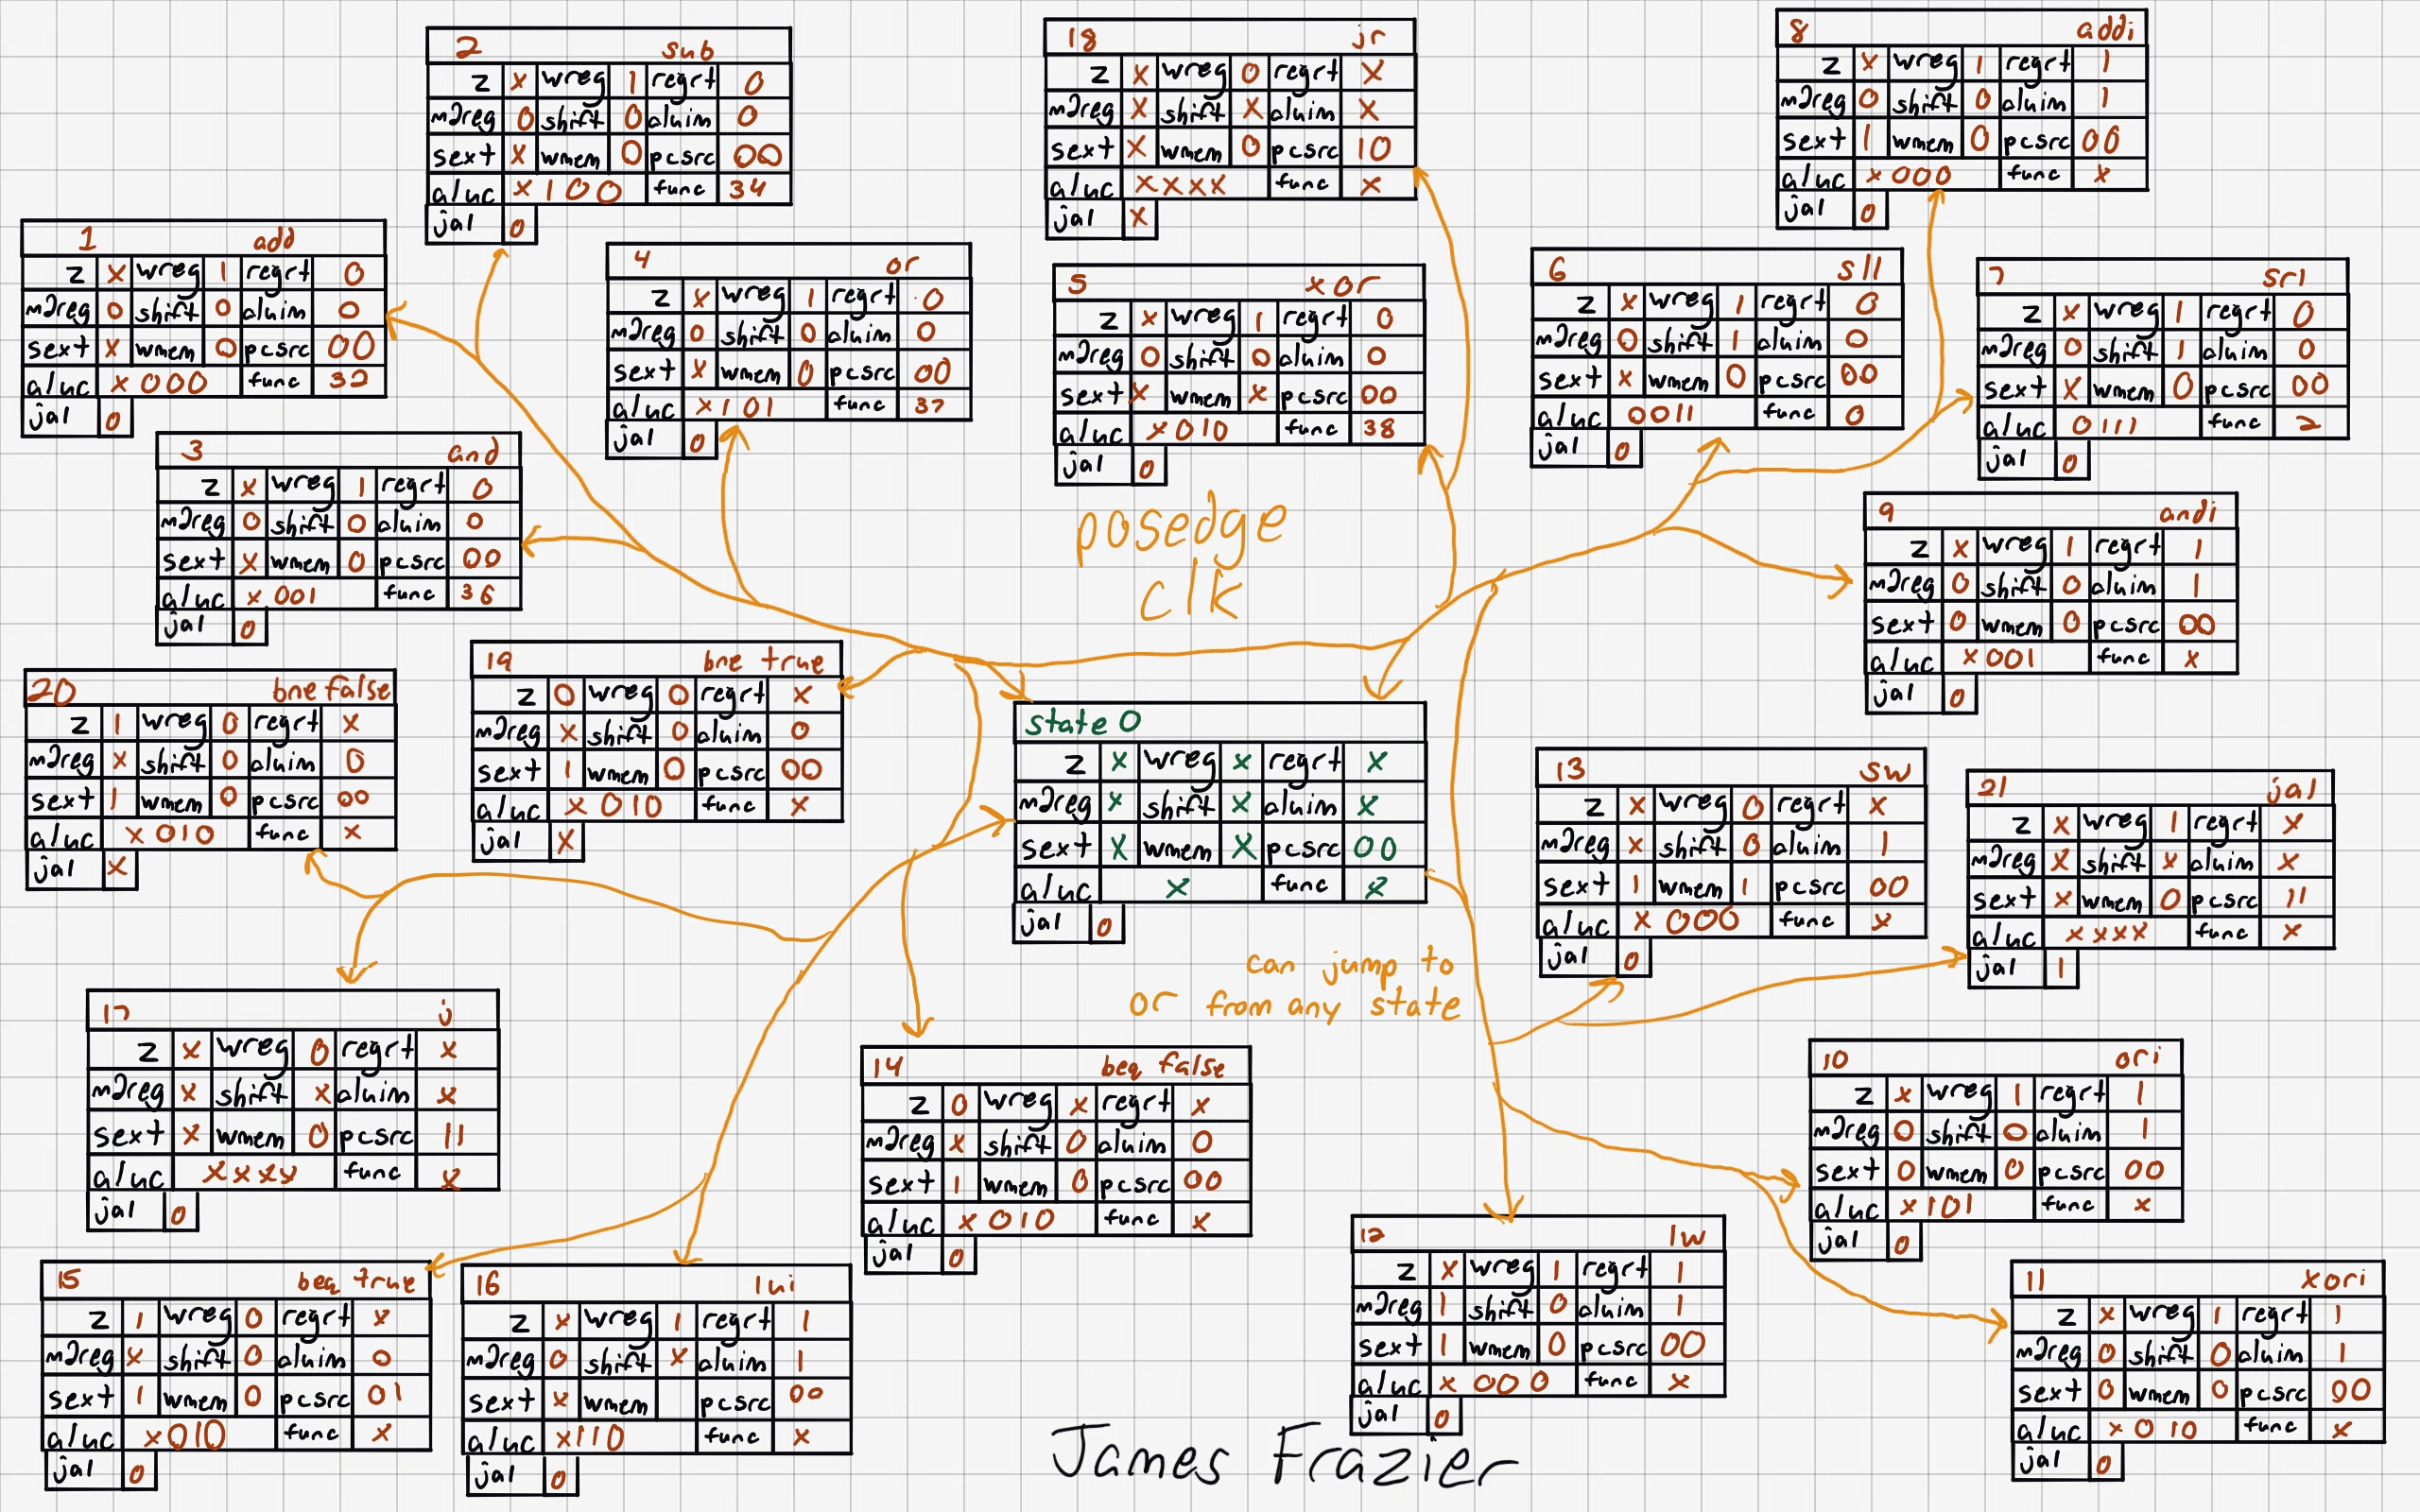 2 sub
z x wreg 1 regrt 0
m2reg 0 shift 0 aluim 0
sext x wmem 0 pcsrc 00
aluc x100 func 34
jal 0
18 jr
z x wreg 0 regrt x
m2reg x shift x aluim x
sext x wmem 0 pcsrc 10
aluc xxxx func x
jal x
8 addi
z x wreg 1 regrt 1
m2reg 0 shift 0 aluim 1
sext 1 wmem 0 pcsrc 00
aluc x000 func x
jal 0
1 add
z x wreg 1 regrt 0
m2reg 0 shift 0 aluim 0
sext x wmem 0 pcsrc 00
aluc x000 func 32
jal 0
4 or
z x wreg 1 regrt 0
m2reg 0 shift 0 aluim 0
sext x wmem 0 pcsrc 00
aluc x101 func 37
jal 0
5 xor
z x wreg 1 regrt 0
m2reg 0 shift 0 aluim 0
sext x wmem x pcsrc 00
aluc x010 func 38
jal 0
6 sll
z x wreg 1 regrt 0
m2reg 0 shift 1 aluim 0
sext x wmem 0 pcsrc 00
aluc 0011 func 0
jal 0
7 srl
z x wreg 1 regrt 0
m2reg 0 shift 1 aluim 0
sext x wmem 0 pcsrc 00
aluc 0111 func 2
jal 0
3 and
z x wreg 1 regrt 0
m2reg 0 shift 0 aluim 0
sext x wmem 0 pcsrc 00
aluc x001 func 36
jal 0
posedge
clk
9 andi
z x wreg 1 regrt 1
m2reg 0 shift 0 aluim 1
sext 0 wmem 0 pcsrc 00
aluc x001 func x
jal 0
20 bne false
z 1 wreg 0 regrt x
m2reg x shift 0 aluim 0
sext 1 wmem 0 pcsrc 00
aluc x010 func x
jal x
19 bne true
z 0 wreg 0 regrt x
m2reg x shift 0 aluim 0
sext 1 wmem 0 pcsrc 00
aluc x010 func x
jal x
state 0
z x wreg x regrt x
m2reg x shift x aluim x
sext x wmem x pcsrc 00
aluc x func x
jal 0
13 sw
z x wreg 0 regrt x
m2reg x shift 0 aluim 1
sext 1 wmem 1 pcsrc 00
aluc x000 func x
jal 0
21 jal
z x wreg 1 regrt x
m2reg x shift x aluim x
sext x wmem 0 pcsrc 11
aluc xxxx func x
jal 1
can jump to
or from any state
17 j
z x wreg 0 regrt x
m2reg x shift x aluim x
sext x wmem 0 pcsrc 11
aluc xxxx func x
jal 0
14 beq false
z 0 wreg x regrt x
m2reg x shift 0 aluim 0
sext 1 wmem 0 pcsrc 00
aluc x010 func x
jal 0
10 ori
z x wreg 1 regrt 1
m2reg 0 shift 0 aluim 1
sext 0 wmem 0 pcsrc 00
aluc x101 func x
jal 0
15 beq true
z 1 wreg 0 regrt x
m2reg x shift 0 aluim 0
sext 1 wmem 0 pcsrc 01
aluc x010 func x
jal 0
16 lui
z x wreg 1 regrt 1
m2reg 0 shift x aluim 1
sext x wmem pcsrc 00
aluc x110 func x
jal 0
12 lw
z x wreg 1 regrt 1
m2reg 1 shift 0 aluim 1
sext 1 wmem 0 pcsrc 00
aluc x000 func x
jal 0
11 xori
z x wreg 1 regrt 1
m2reg 0 shift 0 aluim 1
sext 0 wmem 0 pcsrc 00
aluc x010 func x
jal 0
James Frazier